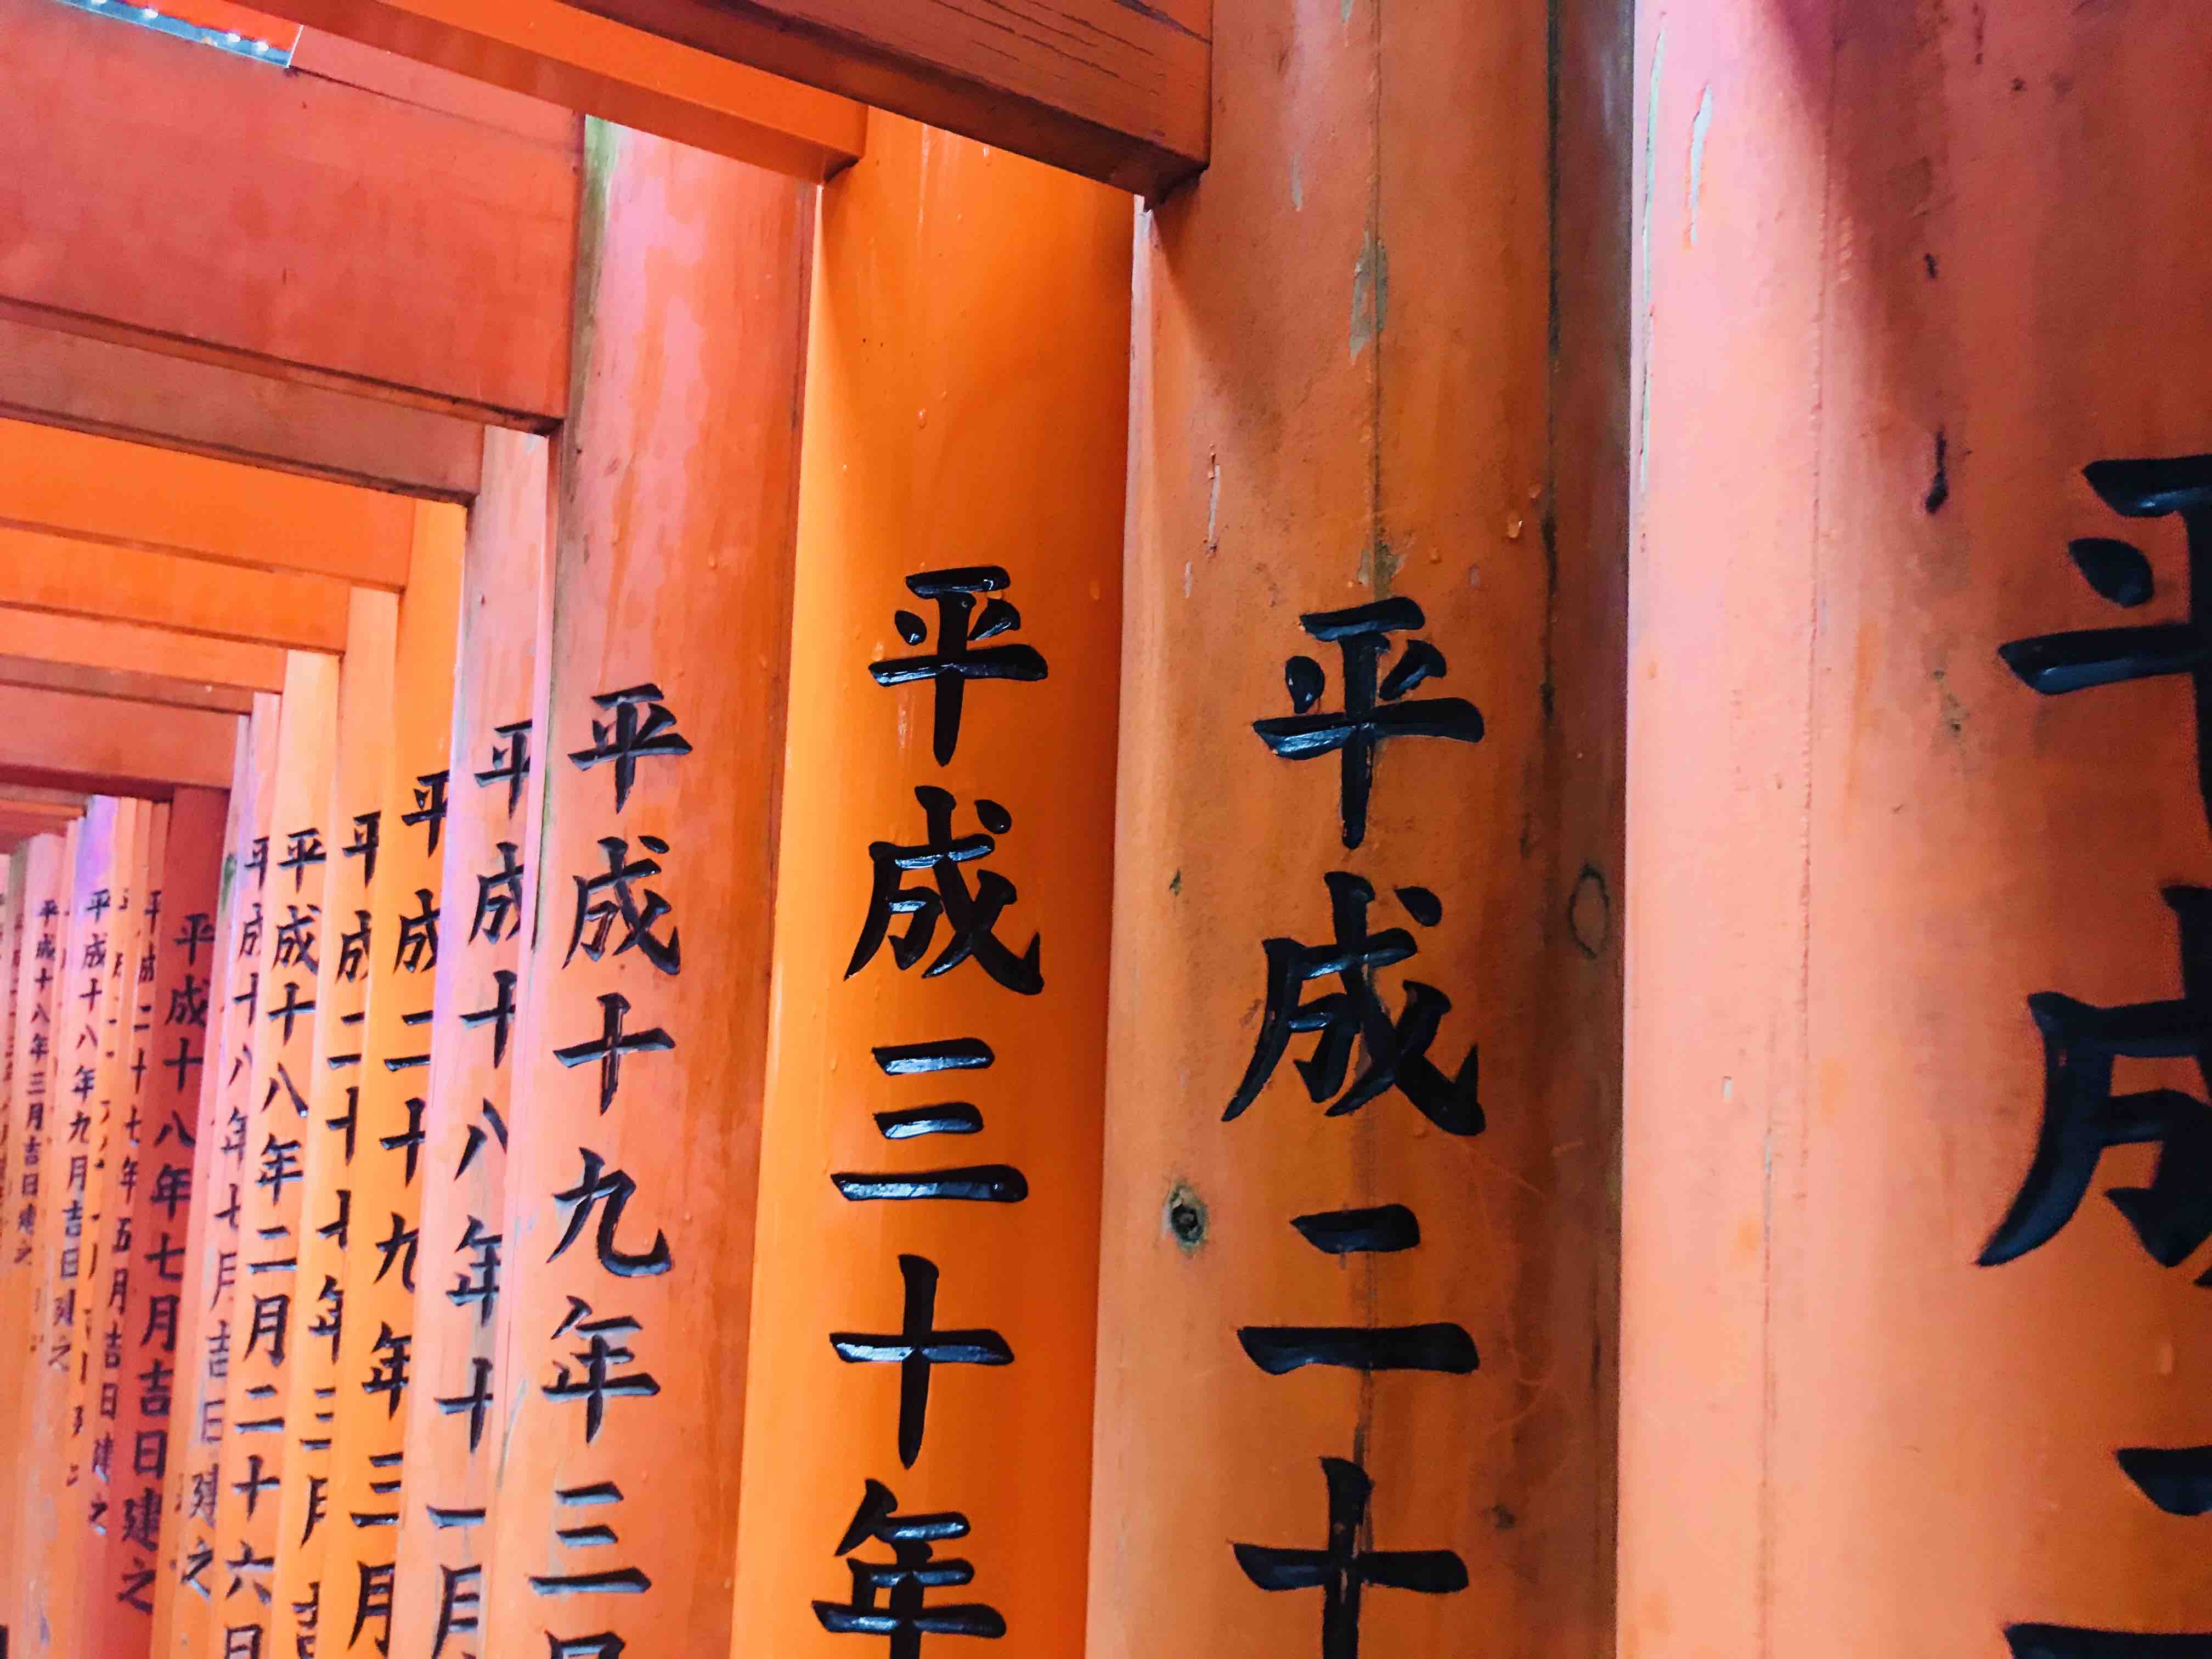 平成
平成二十
平成三十年
平成十九年三月
平成十八年十一月
平成二十九年三月
平成二十七年三月吉
平成十八年二月二十六日
平成十八年七月吉日建之
平成十八年七月吉日建之
平成二十七年五月吉日建之
平成十八年九月吉日建之
平成十八年三月吉日建之